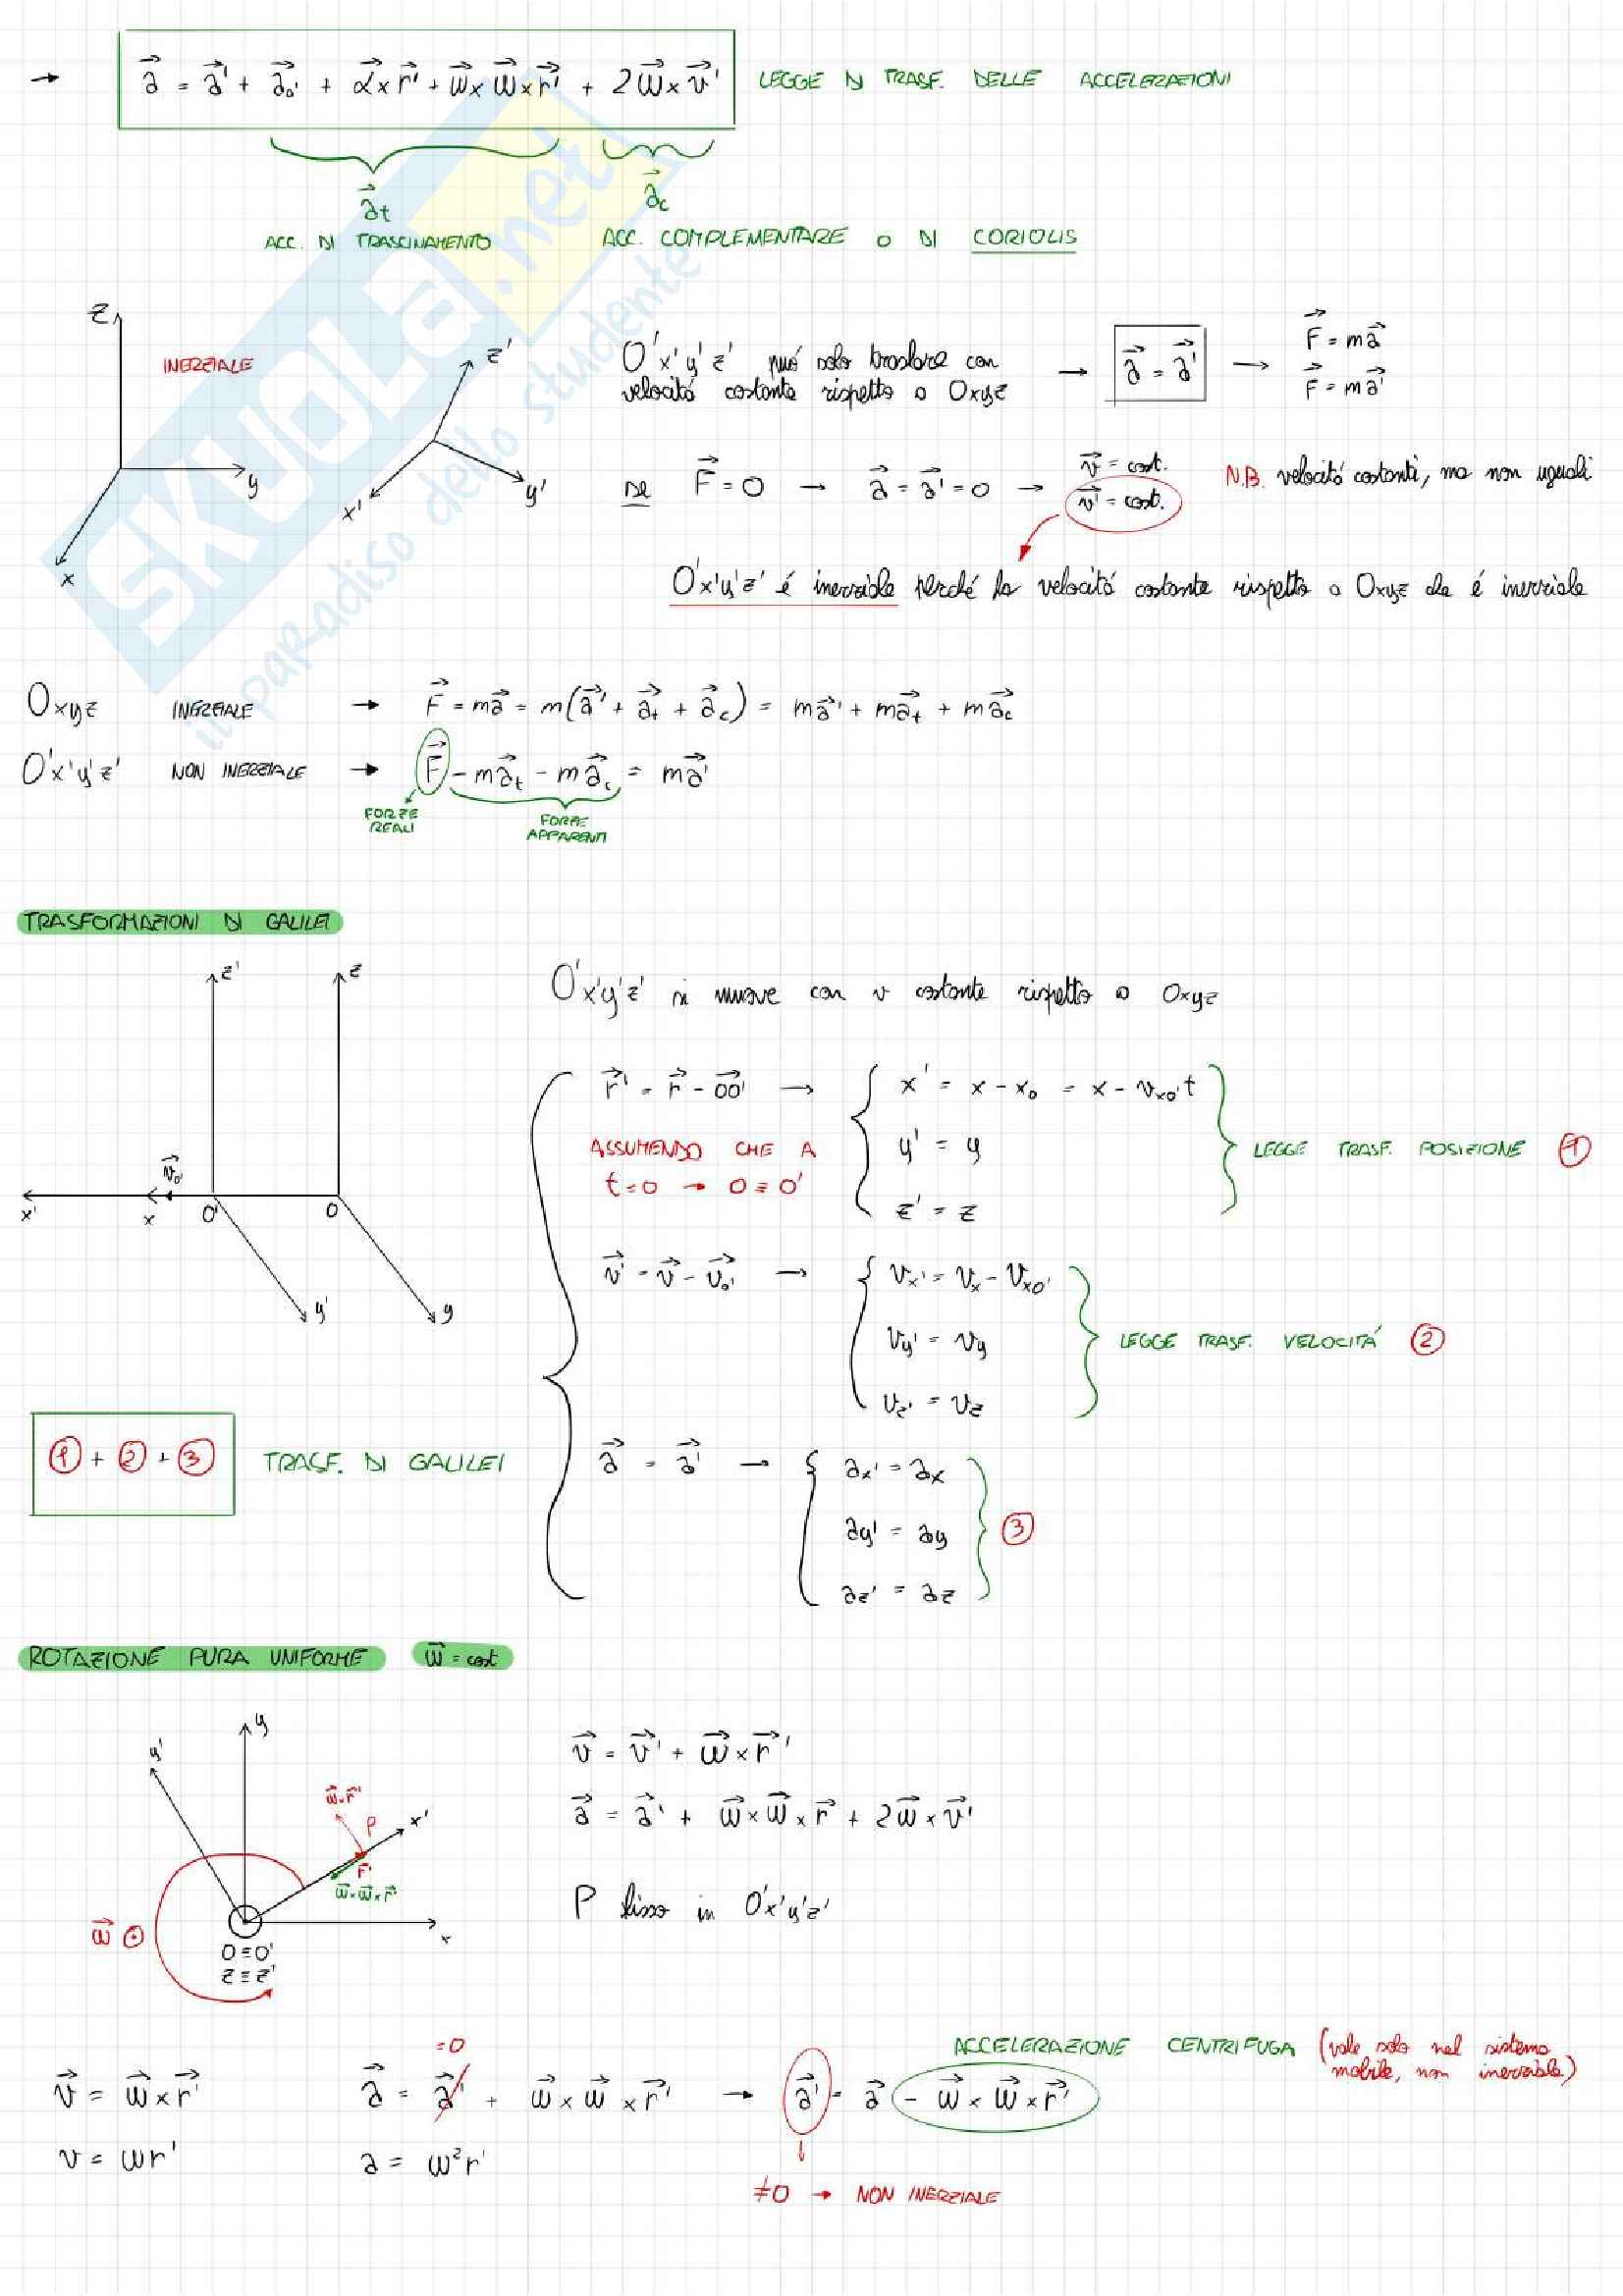 → a⃗ = a⃗' + a⃗o' + α⃗ × r⃗' + ω⃗ × ω⃗ × r⃗' + 2ω⃗ × v⃗' LEGGE DI TRASF. DELLE ACCELERAZIONI
a⃗t a⃗c
ACC. DI TRASCINAMENTO ACC. COMPLEMENTARE O DI CORIOLIS
SKUOLA.net
il paradiso dello studente
z INERZIALE y x
z' y' x'
O'x'y'z' può solo traslare con
velocitá costante rispetto a Oxyz → a⃗ = a⃗' → F⃗ = ma⃗
F⃗ = ma⃗'
se F⃗ = 0 → a⃗ = a⃗' = 0 → v⃗ = cost. N.B. velocitá costanti, ma non uguali
v⃗' = cost.
O'x'y'z' é inerziale perché ha velocitá costante rispetto a Oxyz che é inerziale
Oxyz INERZIALE → F⃗ = ma⃗ = m(a⃗' + a⃗t + a⃗c) = ma⃗' + ma⃗t + ma⃗c
O'x'y'z' NON INERZIALE → F⃗ - ma⃗t - ma⃗c = ma⃗'
FORZE
REALI
FORZE
APPARENTI
TRASFORMAZIONI DI GALILEI
z' z
v⃗o'
x' x O' O
y' y
O'x'y'z' si muove con v costante rispetto a Oxyz
r⃗' = r⃗ - OO⃗' → x' = x - xo = x - vxo't
ASSUMENDO CHE A y' = y LEGGE TRASF. POSIZIONE 1
t=0 → O ≡ O' z' = z
v⃗' = v⃗ - v⃗o' → vx' = vx - vxo'
vy' = vy LEGGE TRASF. VELOCITÁ 2
vz' = vz
1 + 2 + 3 TRASF. DI GALILEI
a⃗ = a⃗' → ax' = ax
ay' = ay 3
az' = az
ROTAZIONE PURA UNIFORME ω⃗ = cost
y y' x' x
ω⃗×r⃗' P r⃗'
ω⃗×ω⃗×r⃗'
ω⃗ ⊙
O ≡ O'
z ≡ z'
v⃗ = v⃗' + ω⃗ × r⃗'
a⃗ = a⃗' + ω⃗ × ω⃗ × r⃗ + 2ω⃗ × v⃗'
P fisso in O'x'y'z'
v⃗ = ω⃗ × r⃗' a⃗ = a⃗' + ω⃗ × ω⃗ × r⃗' → a⃗' = a⃗ - ω⃗ × ω⃗ × r⃗'
=0
ACCELERAZIONE CENTRIFUGA (vale solo nel sistema
mobile, non inerziale)
v = ωr' a = ω²r'
≠0 → NON INERZIALE